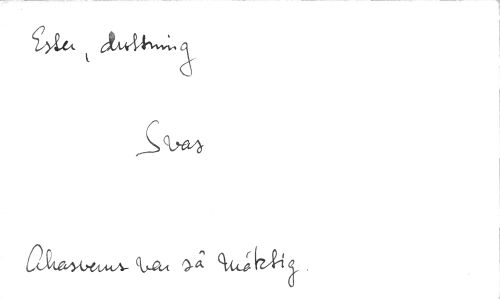 Ester, drottning
Svar
Ahasverus var så mäktig.